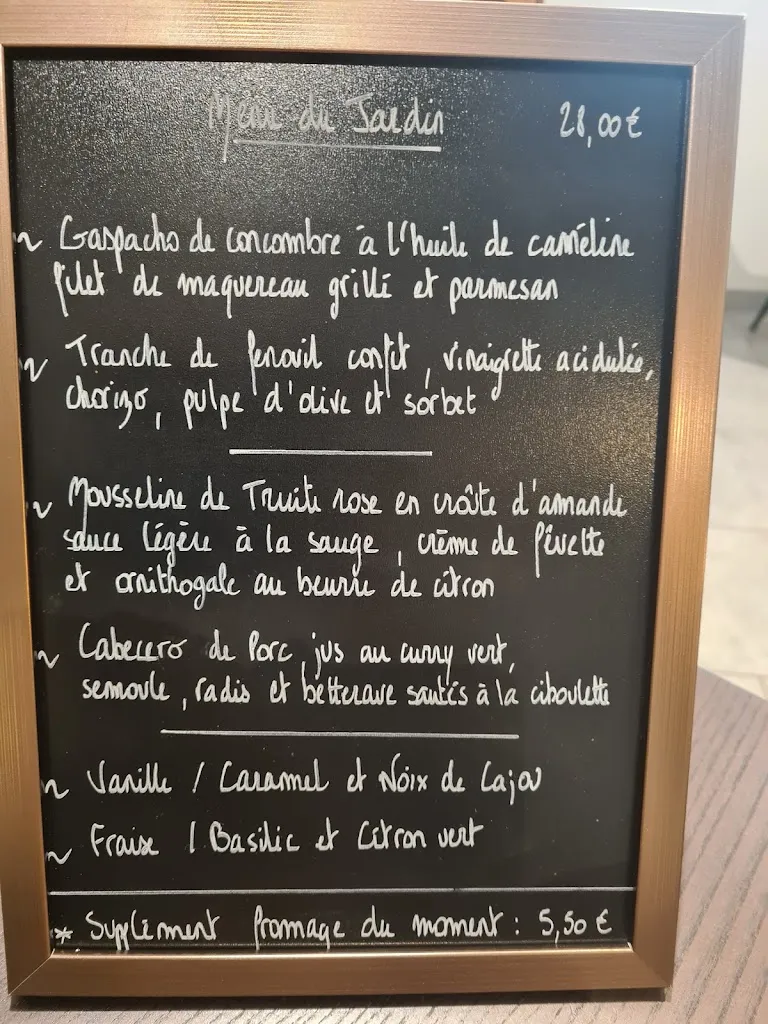 Menu du Jardin 28,00 €
~ Gaspacho de concombre à l'huile de caméline
filet de maquereau grillé et parmesan
~ Tranche de fenouil confit, vinaigrette acidulée,
chorizo, pulpe d'olive et sorbet
~ Mousseline de Truite rose en croûte d'amande
sauce légère à la sauge, crème de févette
et ornithogale au beurre de citron
~ Cabecero de Porc, jus au curry vert,
semoule, radis et betterave sautés à la ciboulette
~ Vanille / Caramel et Noix de Cajou
~ Fraise / Basilic et Citron vert
* Supplément fromage du moment : 5,50 €